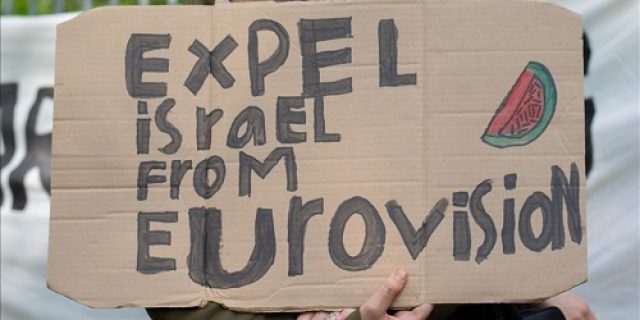 EXPEL
israEL
From
Eurovision